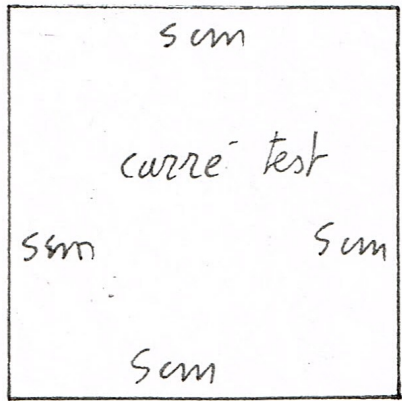 5 cm
carré test
5cm 5cm
5cm